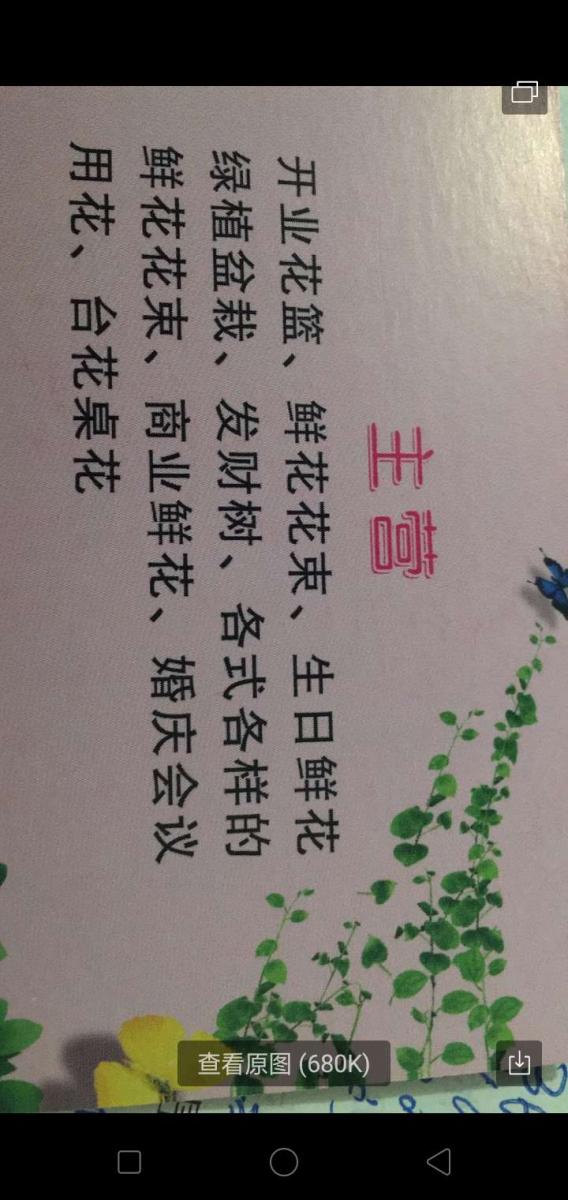 主营
开业花篮、鲜花花束、生日鲜花
绿植盆栽、发财树、各式各样的
鲜花花束、商业鲜花、婚庆会议
用花、台花桌花
查看原图 (680K)